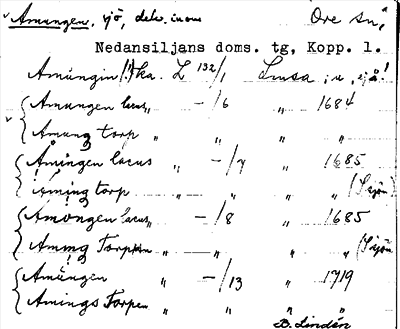 Amungen, sjö, delv. inom Ore sn,
Nedansiljans doms. tg, Kopp. l.
Amängin (!) ka. L 132/1
Amungen lacus " -/6 " 1684
Amung torp " " " "
Åmingen lacus " -/7 " 1685
Åming torp " " " "
Amongen lacus " -/8 " 1685
Åmmg Torpen " " " "
Amängen " -/13 " 1719
Amings Torpen " " " "
B. Lindén